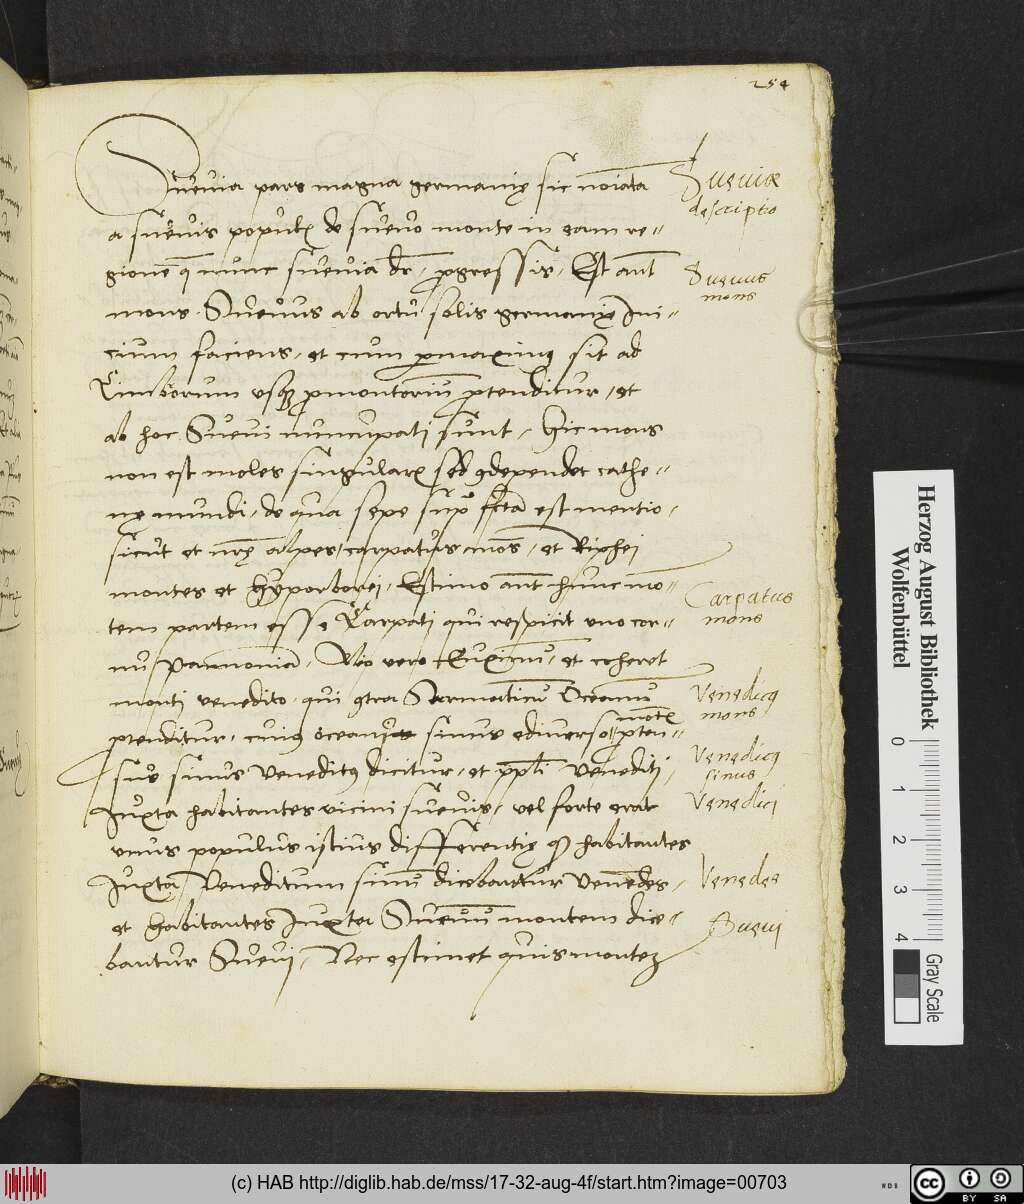 254
Suevia pars magna germanię sic noi͞ata
a suevis populꝭ de suevo monte in eam re=
gione͞ q͞ nunc suevia dr͞, ꝓgressis, Est aut͞
mons Suevus ab ortu solis germanię Ini=
cium faciens, et cum ꝑmaximꝰ sit ad
Cimbrorum usqꝫ ꝓmontoriu͞ ꝓtenditur, et
ab hoc Suevi nuncupati sunt, Hic mons
non est moles singularꝭ sed ꝯdependet cathe=
nę mundi, de qua sepe sup͛ fc͞ta est mentio,
sicut et nr͞ę alpes, carpatus mo͞s, et Riphei
montes et hÿporborei, Estimo aut͞ hunc mo͞=
tem partem esse Carpati qui respicit uno cor=
nu pannonia͞, Alio vero Euxinu͞, et coheret
monti venedito, qui ꝯtra Sarmaticu͞ Oceanu͞
ꝓtenditur, cuiꝰ oceani sinus ediverso montꝭ ꝓten=
sus sinus Veneditꝰ dicitur, et pp͞li Venediti,
Iuxta habitantes vicini suevis, vel forte erat
unus populus istius differentię ꝙ habitantes
Iuxta Veneditum sinu͞ dicebantur Venedes,
et habitantes Iuxta Suevu͞ montem dice=
bantur Suevi, Nec estimet quis monteꝫ
Sueviæ
descriptio
Suevus
mons
Carpatus
mons
Venedicꝰ
mons
Venedicꝰ
sinus
Venedici
Venedes
Suevi
Herzog August Bibliothek
Wolfenbüttel
0 1 2 3 4
Gray Scale
(c) HAB http://diglib.hab.de/mss/17-32-aug-4f/start.htm?image=00703
WDB
cc BY SA